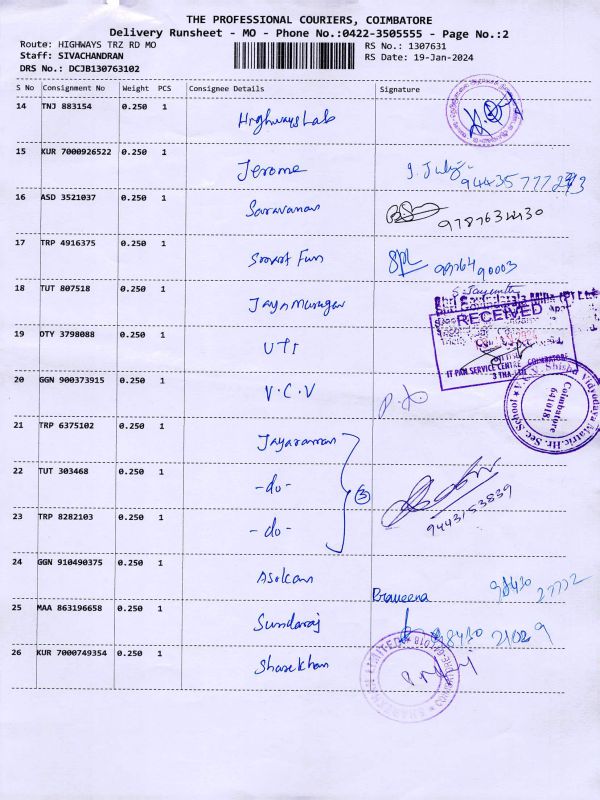 THE PROFESSIONAL COURIERS, COIMBATORE
Delivery Runsheet - MO - Phone No.:0422-3505555 - Page No.:2
Route: HIGHWAYS TRZ RD MO RS No.: 1307631
Staff: SIVACHANDRAN RS Date: 19-Jan-2024
DRS No.: DCJB130763102
S No Consignment No Weight PCS Consignee Details Signature
14 TNJ 883154 0.250 1 Highways Lab
15 KUR 7000926522 0.250 1 Jerome
16 ASD 3521037 0.250 1 Saravanan
17 TRP 4916375 0.250 1 Smart Fun 9976490003
18 TUT 807518 0.250 1 Jaya Murugan
RECEIVED
19 DTY 3798088 0.250 1 UTI
IT PAN SERVICE CENTRE COIMBATORE
20 GGN 900373915 0.250 1 V.C.V
Coimbatore
641018.
21 TRP 6375102 0.250 1 Jayaraman
22 TUT 303468 0.250 1 -do- 3
23 TRP 8282103 0.250 1 -do- 9443153839
24 GGN 910490375 0.250 1 Asokan Praveena
25 MAA 863196658 0.250 1 Sundaraj
26 KUR 7000749354 0.250 1 Sharekhan